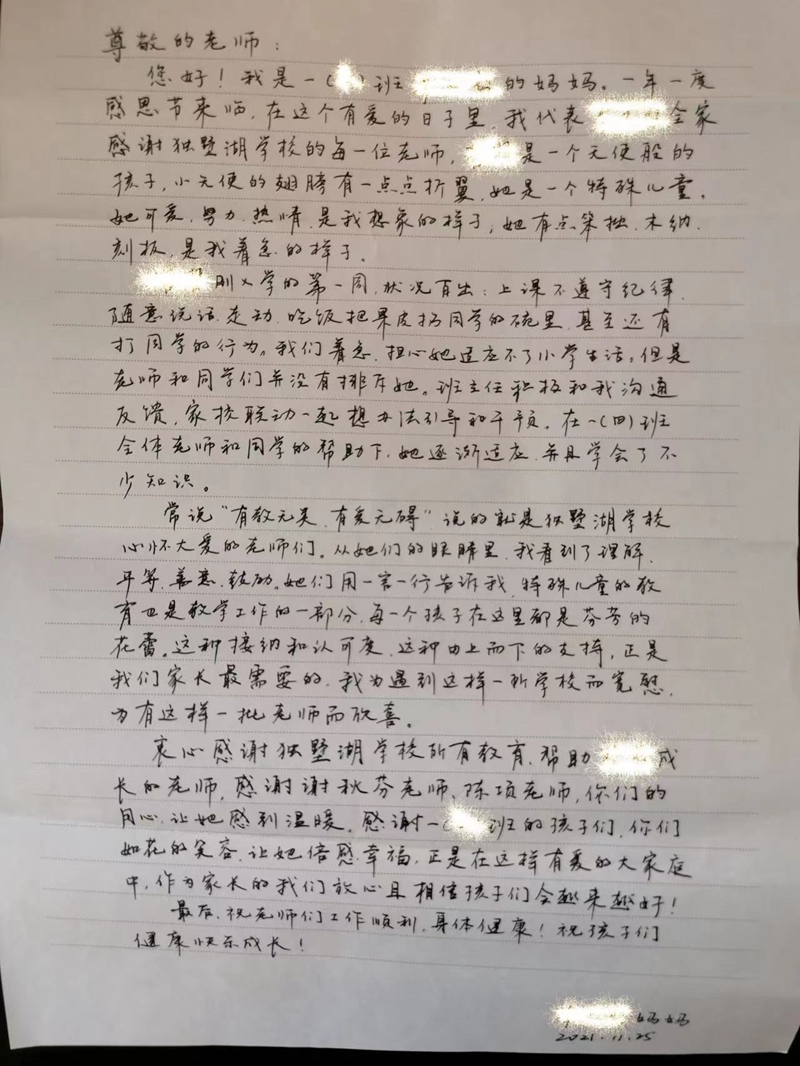 尊敬的老师：
您好！我是一( )班 的妈妈。一年一度
感恩节来临，在这个有爱的日子里，我代表 全家
感谢独墅湖学校的每一位老师， 是一个天使般的
孩子，小天使的翅膀有一点点折翼，她是一个特殊儿童。
她可爱、努力、热情，是我想象的样子，她有点笨拙、木纳、
刻板，是我着急的样子。
刚入学的第一周，状况百出：上课不遵守纪律、
随意说话、走动、吃饭把果皮扔同学的碗里，甚至还有
打同学的行为。我们着急，担心她适应不了小学生活，但是
老师和同学们并没有排斥她。班主任积极和我沟通
反馈，家校联动一起想办法引导和干预。在一(四)班
全体老师和同学的帮助下，她逐渐适应，并且学会了不
少知识。
常说“有教无类，有爱无碍”说的就是独墅湖学校
心怀大爱的老师们。从她们的眼睛里，我看到了理解、
平等、善意、鼓励。她们用一言一行告诉我，特殊儿童的教
育也是教学工作的一部分，每一个孩子在这里都是芬芳的
花蕾。这种接纳和认可度，这种由上而下的支持，正是
我们家长最需要的，我为遇到这样一所学校而宽慰，
为有这样一批老师而欣喜。
衷心感谢独墅湖学校所有教育、帮助 成
长的老师，感谢谢秋芬老师、陈项老师，你们的
用心，让她感到温暖。感谢一( )班的孩子们，你们
如花的笑容，让她倍感幸福，正是在这样有爱的大家庭
中，作为家长的我们放心且相信孩子们会越来越好！
最后，祝老师们工作顺利，身体健康！祝孩子们
健康快乐成长！
妈妈
2021.11.25